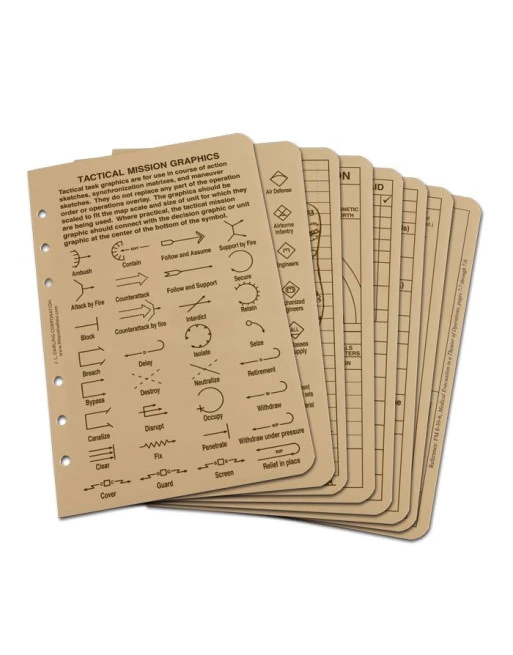 TACTICAL MISSION GRAPHICS
Tactical task graphics are for use in course of action
sketches, synchronization matrixes, and maneuver
sketches. They do not replace any part of the operation
order or operations overlay. The graphics should be
scaled to fit the map scale and size of unit for which they
are being used. Where practical, the tactical mission
graphic should connect with the decision graphic or unit
graphic at the center of the bottom of the symbol.
Ambush
Contain
Follow and Assume
Support by Fire
Attack by Fire
Counterattack
Follow and Support
Secure
Block
Counterattack by fire
Interdict
Retain
Breach
Delay
Isolate
Seize
Bypass
Destroy
Neutralize
Retirement
Canalize
Disrupt
Occupy
Withdraw
Clear
Fix
Penetrate
Withdraw under pressure
Cover
Guard
Screen
Relief in place
J. L. DARLING CORPORATION
Air Defense
Airborne
Infantry
ngineers
hanized
gineers
ALL
lasses
upply
ent
ts
rial
ON
NETIC
RTH
LS
TERS
ION
AID
References: FM 8-10-6, Medical Evacuation in a Theater of Operations, pages 7-7 through 7-9.